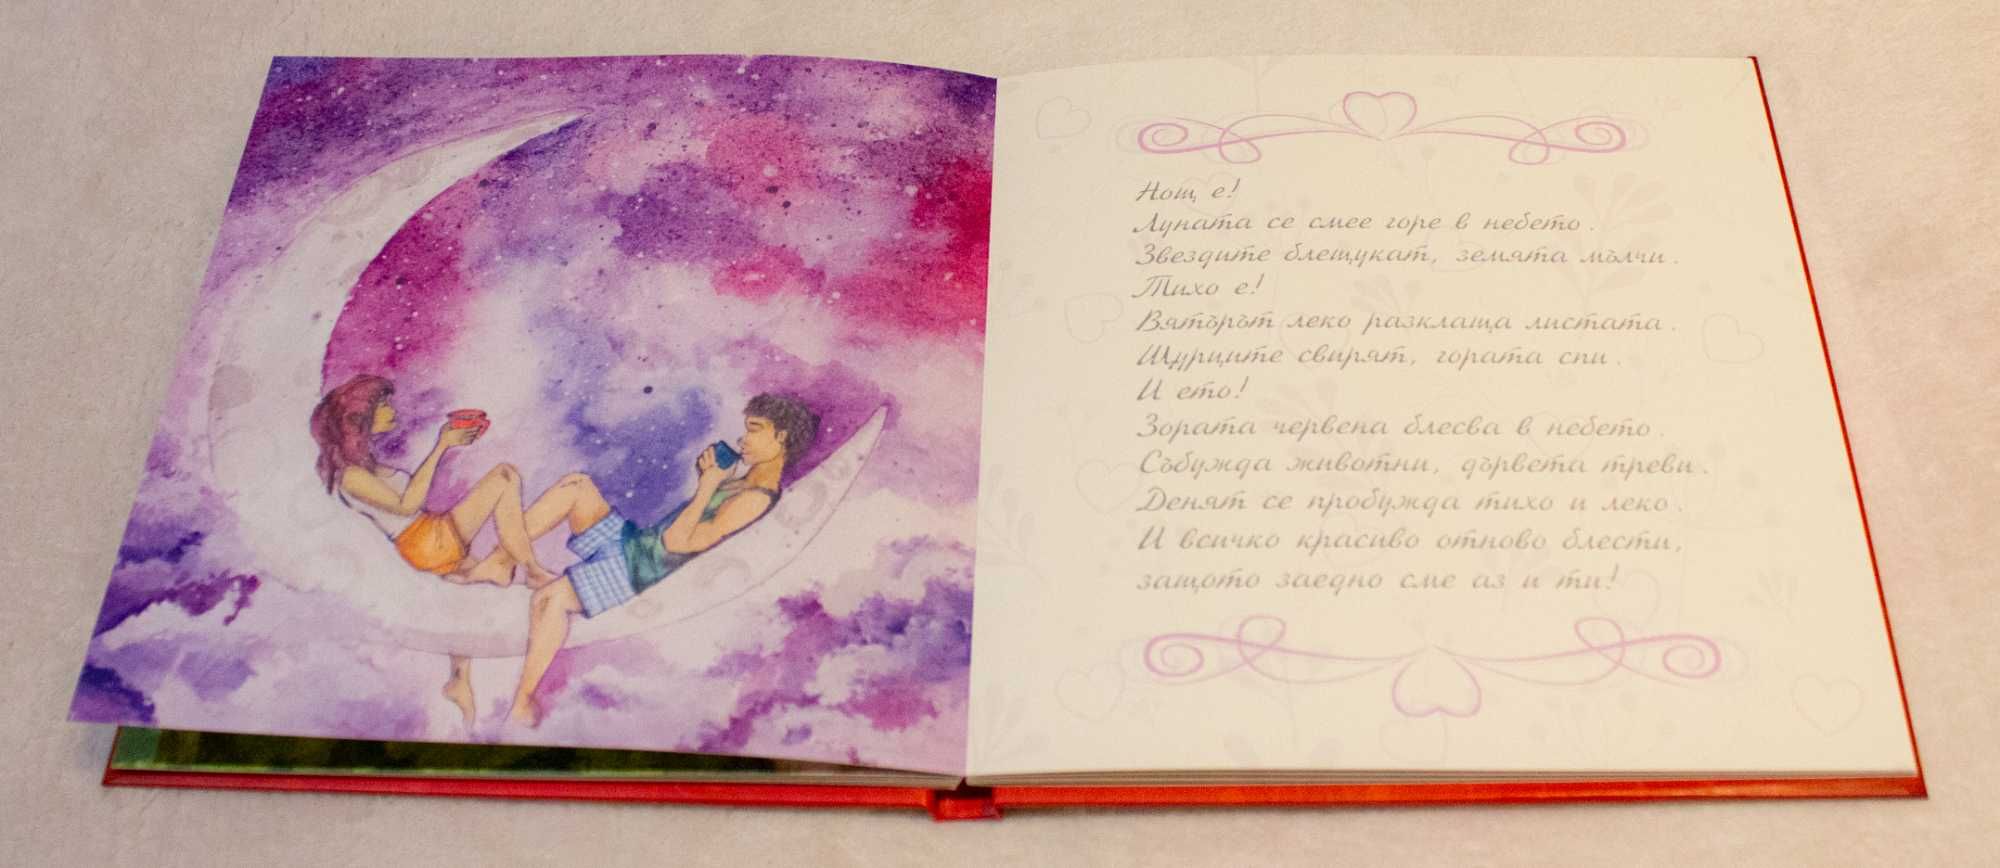 Нощ е!
Луната се смее горе в небето.
Звездите блещукат, земята мълчи.
Тихо е!
Вятърът леко разклаща листата.
Щурците свирят, гората спи.
И ето!
Зората червена блесва в небето.
Събужда животни, дървета треви.
Денят се пробужда тихо и леко.
И всичко красиво отново блести,
защото заедно сме аз и ти!